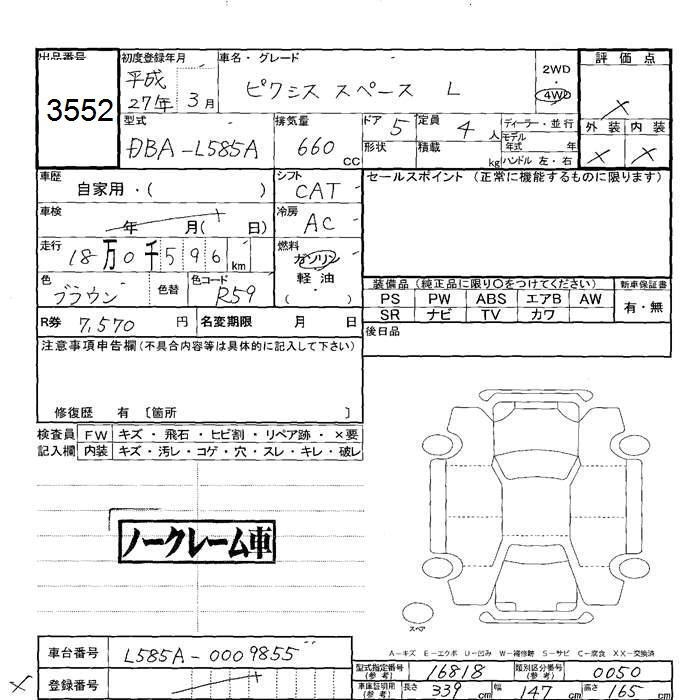 出品番号
3552
初度登録年月
平成
27年 3月
車名・グレード
ピクシス スペース L
2WD
4WD
評価点
×
外装 内装
× ×
型式
DBA-L585A
排気量
660 CC
ドア 5
形状
定員 4 人
積載 kg
ディーラー・並行
モデル年式 年
ハンドル 左・右
車歴
自家用・( )
シフト
CAT
セールスポイント (正常に機能するものに限ります)
車検
年 月( 日)
冷房
AC
走行
18万0千596 km
燃料
ガソリン
軽油
( )
色
ブラウン
色替
色コード
R59
装備品 (純正品に限り○をつけてください)
新車保証書
PS PW ABS エアB AW
SR ナビ TV カワ
有・無
R券 7,570 円
名変期限 月 日
後日品
注意事項申告欄(不具合内容等は具体的に記入して下さい)
修復歴 有 〔箇所 〕
検査員
記入欄
FW キズ・飛石・ヒビ割・リペア跡・×要
内装 キズ・汚レ・コゲ・穴・スレ・キレ・破レ
ノークレーム車
スペア
A-キズ E-エクボ U-凹み W-補修跡 S-サビ C-腐食 XX-交換済
車台番号
L585A-0009855
型式指定番号
(参考)
16818
類別区分番号
(参考)
0050
× 登録番号
車庫証明用
(参考)
長さ 339 cm 幅 147 cm 高さ 165 cm